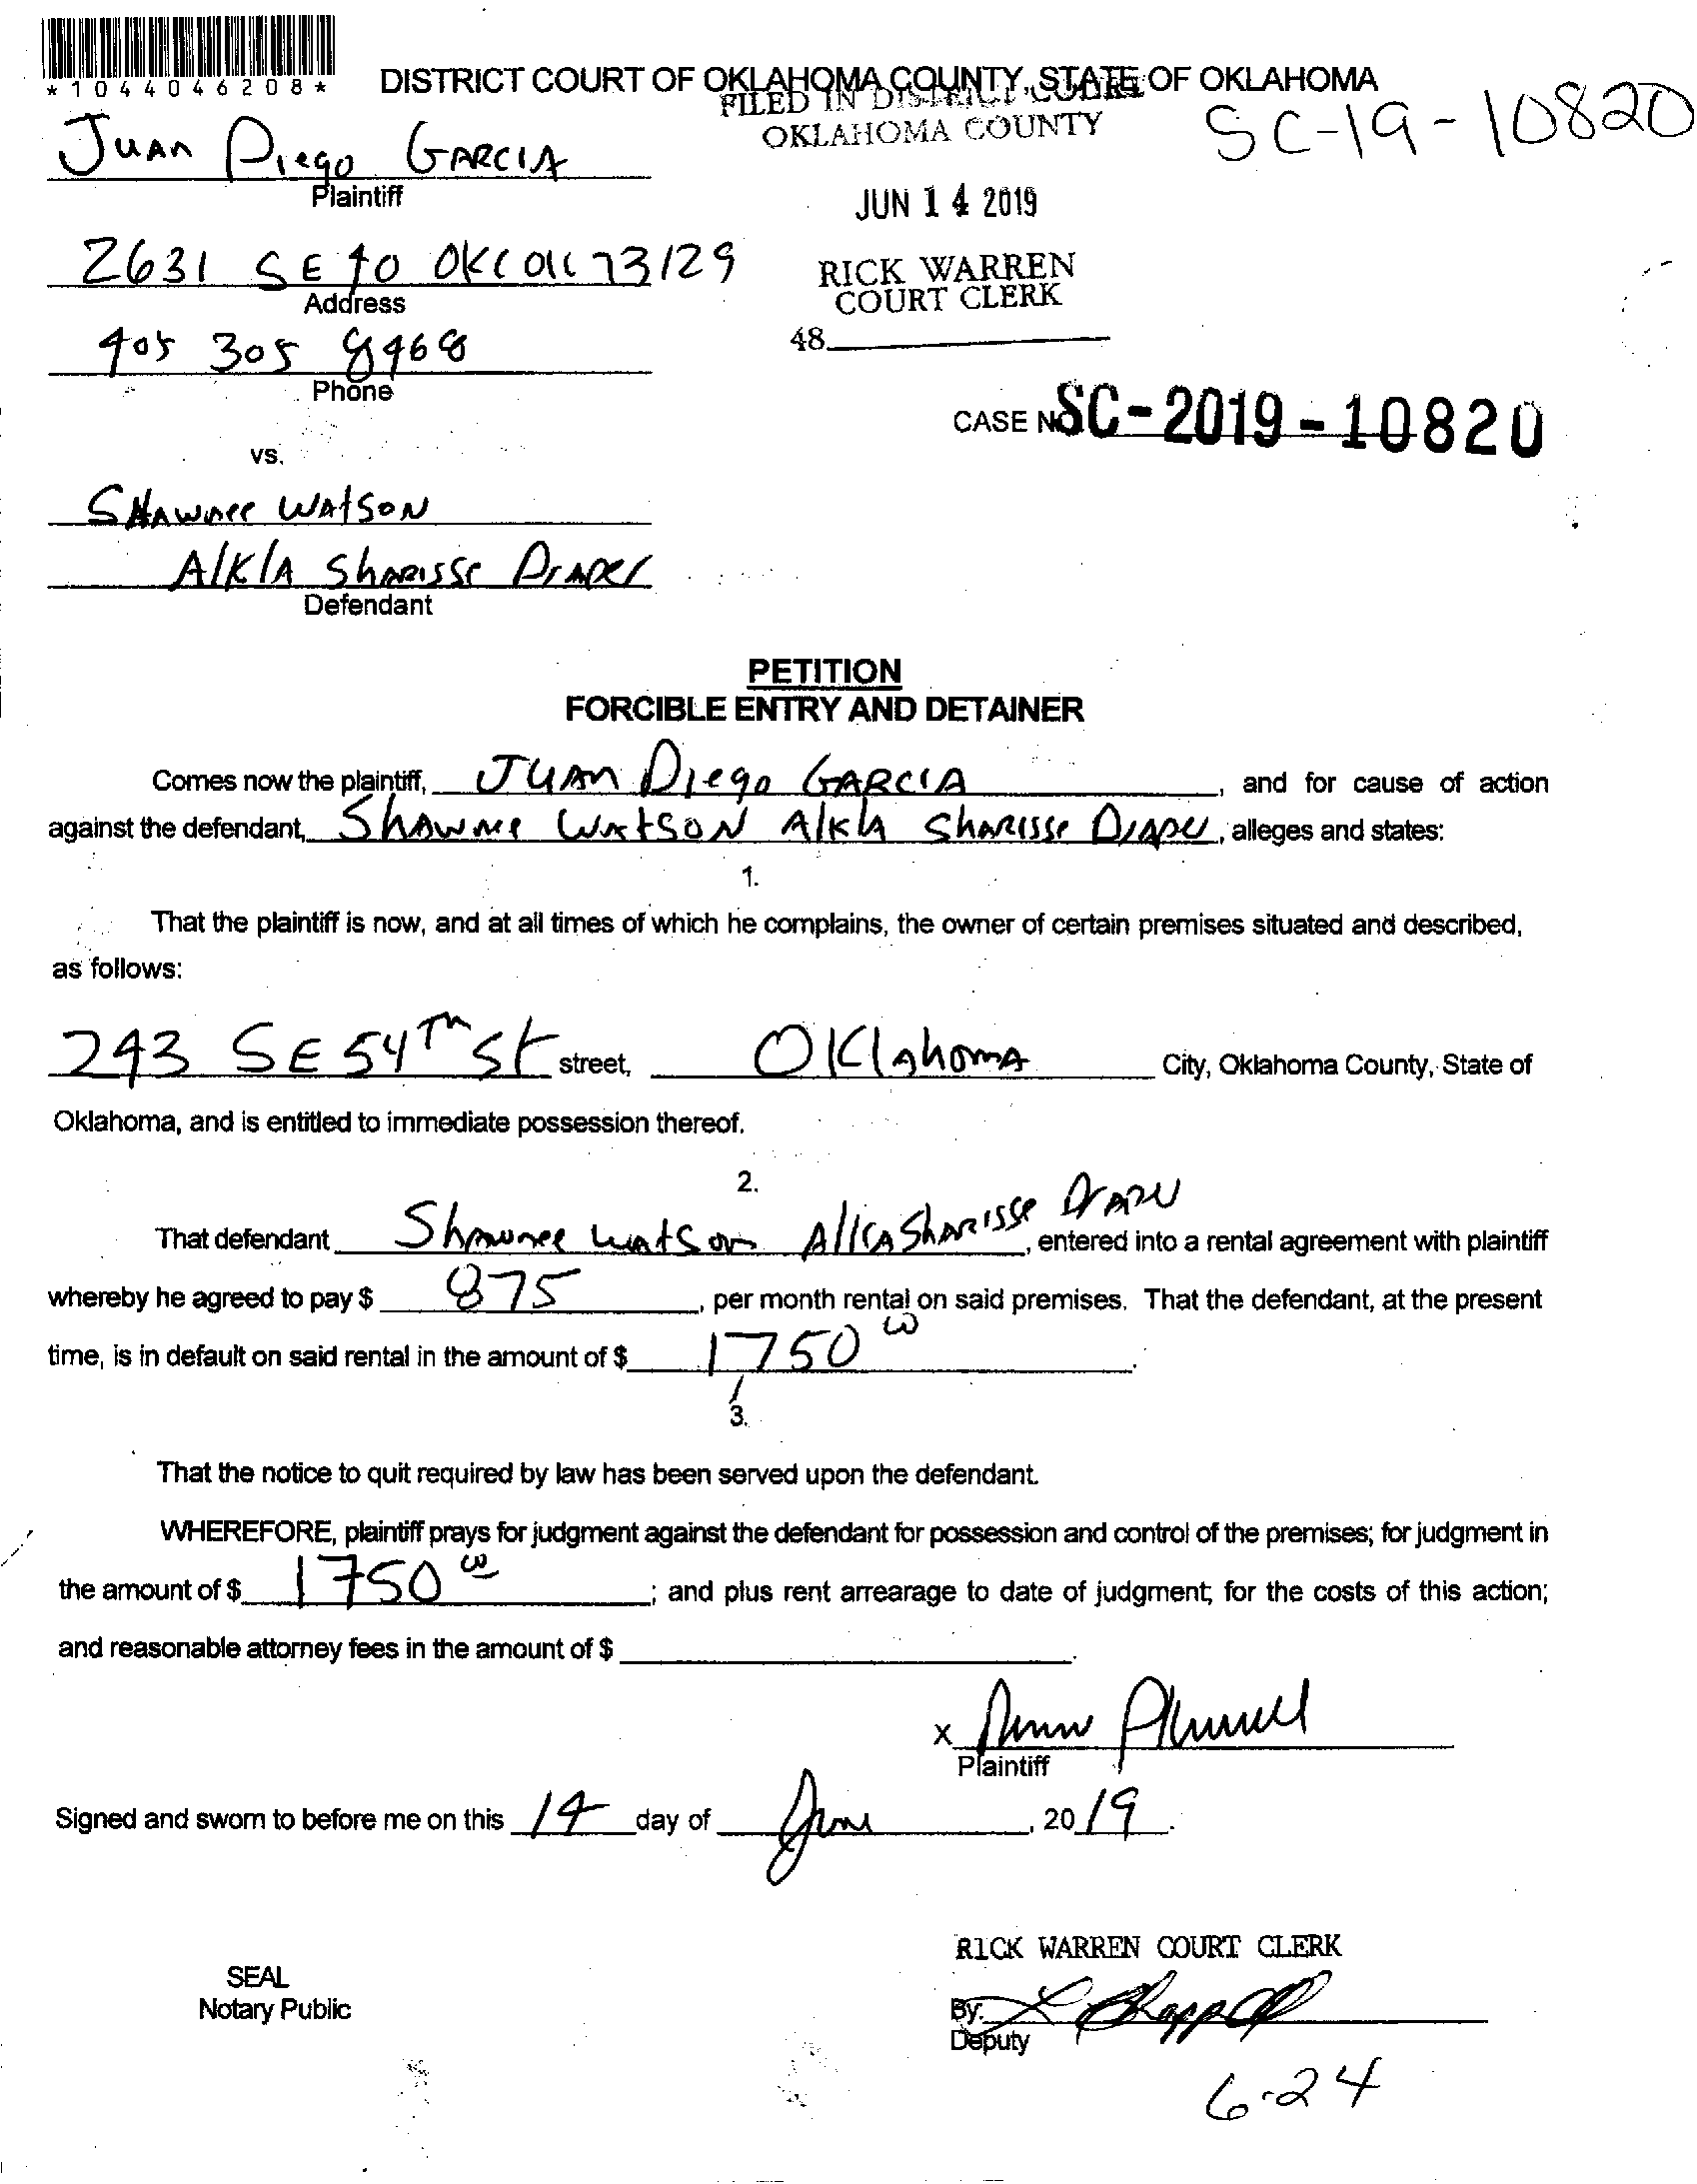 *1044046208*
DISTRICT COURT OF OKLAHOMA COUNTY, STATE OF OKLAHOMA
FILED IN DISTRICT COURT
OKLAHOMA COUNTY
SC-19-10820
Juan Diego GARCIA
Plaintiff
JUN 14 2019
2631 SE 40 OKC OK 73129
Address
RICK WARREN
COURT CLERK
405 305 8468
Phone
48
CASE NO SC-2019-10820
vs.
SHAWNEE WATSON
A/K/A Sharisse Draper
Defendant
PETITION
FORCIBLE ENTRY AND DETAINER
Comes now the plaintiff, JUAN Diego GARCIA, and for cause of action
against the defendant, Shawnee WATSON A/K/A Sharisse Draper, alleges and states:
1.
That the plaintiff is now, and at all times of which he complains, the owner of certain premises situated and described,
as follows:
243 SE 54TH St street, Oklahoma City, Oklahoma County, State of
Oklahoma, and is entitled to immediate possession thereof.
2.
That defendant Shawnee Watson A/K/A Sharisse Draper, entered into a rental agreement with plaintiff
whereby he agreed to pay $ 875, per month rental on said premises. That the defendant, at the present
time, is in default on said rental in the amount of $ 1750 00.
3.
That the notice to quit required by law has been served upon the defendant.
WHEREFORE, plaintiff prays for judgment against the defendant for possession and control of the premises; for judgment in
the amount of $ 1750 00; and plus rent arrearage to date of judgment; for the costs of this action;
and reasonable attorney fees in the amount of $
X
Plaintiff
Signed and sworn to before me on this 14 day of June, 2019.
RICK WARREN COURT CLERK
SEAL
Notary Public
By:
Deputy
6-24